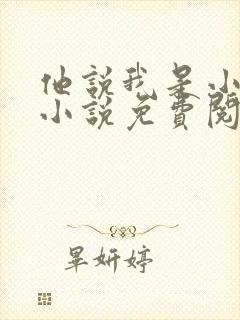 他說我是小
小說免費閱
畢妍婷